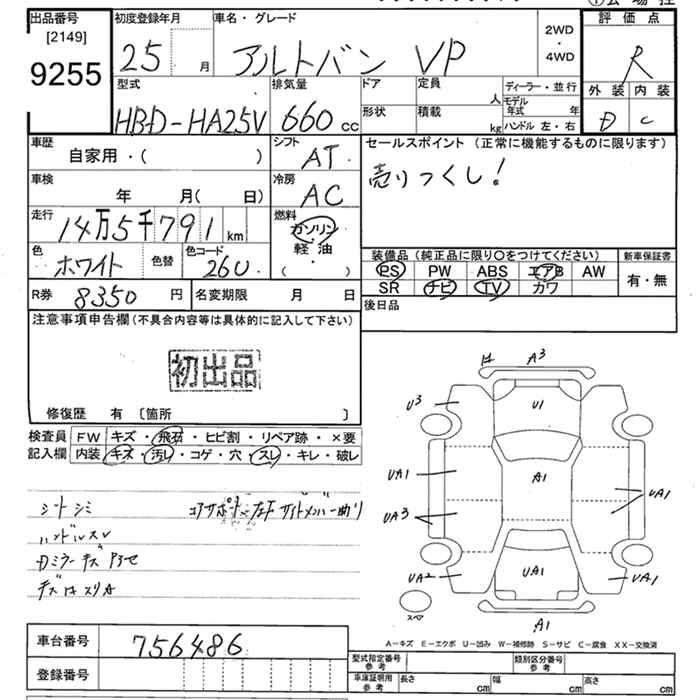 出品番号
[2149]
9255
初度登録年月
25 月
車名・グレード
アルトバン VP
2WD
・
4WD
評価点
R
型式
HBD-HA25V
排気量
660 cc
ドア
形状
定員
人
積載
kg
ディーラー・並行
モデル年式 年
ハンドル 左・右
外装 内装
D C
車歴
自家用・( )
シフト
AT
車検
年 月( 日)
冷房
AC
走行
14万5千791 km
燃料
ガソリン
軽油
( ・ )
色
ホワイト
色替
色コード
26U
R券 8350 円
名変期限 月 日
セールスポイント (正常に機能するものに限ります)
売りつくし!
装備品(純正品に限り○をつけてください)
PS PW ABS エアB AW
SR ナビ TV カワ
新車保証書
有・無
後日品
注意事項申告欄(不具合内容等は具体的に記入して下さい)
初出品
修復歴 有 〔箇所 〕
検査員記入欄
FW キズ・飛石・ヒビ割・リペア跡・×要
内装 キズ・汚レ・コゲ・穴・スレ・キレ・破レ
シートシミ
コアサポート 左右サイドメンバー曲り
ハンドルスレ
Dミラーキズ
A3
U3
U1
UA1
A1
UA3
UA1
UA2
UA1
UA1
スペア
A1
A-キズ E-エクボ U-凹み W-補修跡 S-サビ C-腐食 XX-交換済
車台番号
756486
登録番号
型式指定番号 参考
類別区分番号 参考
車庫証明用 参考
長さ cm
幅 cm
高さ cm